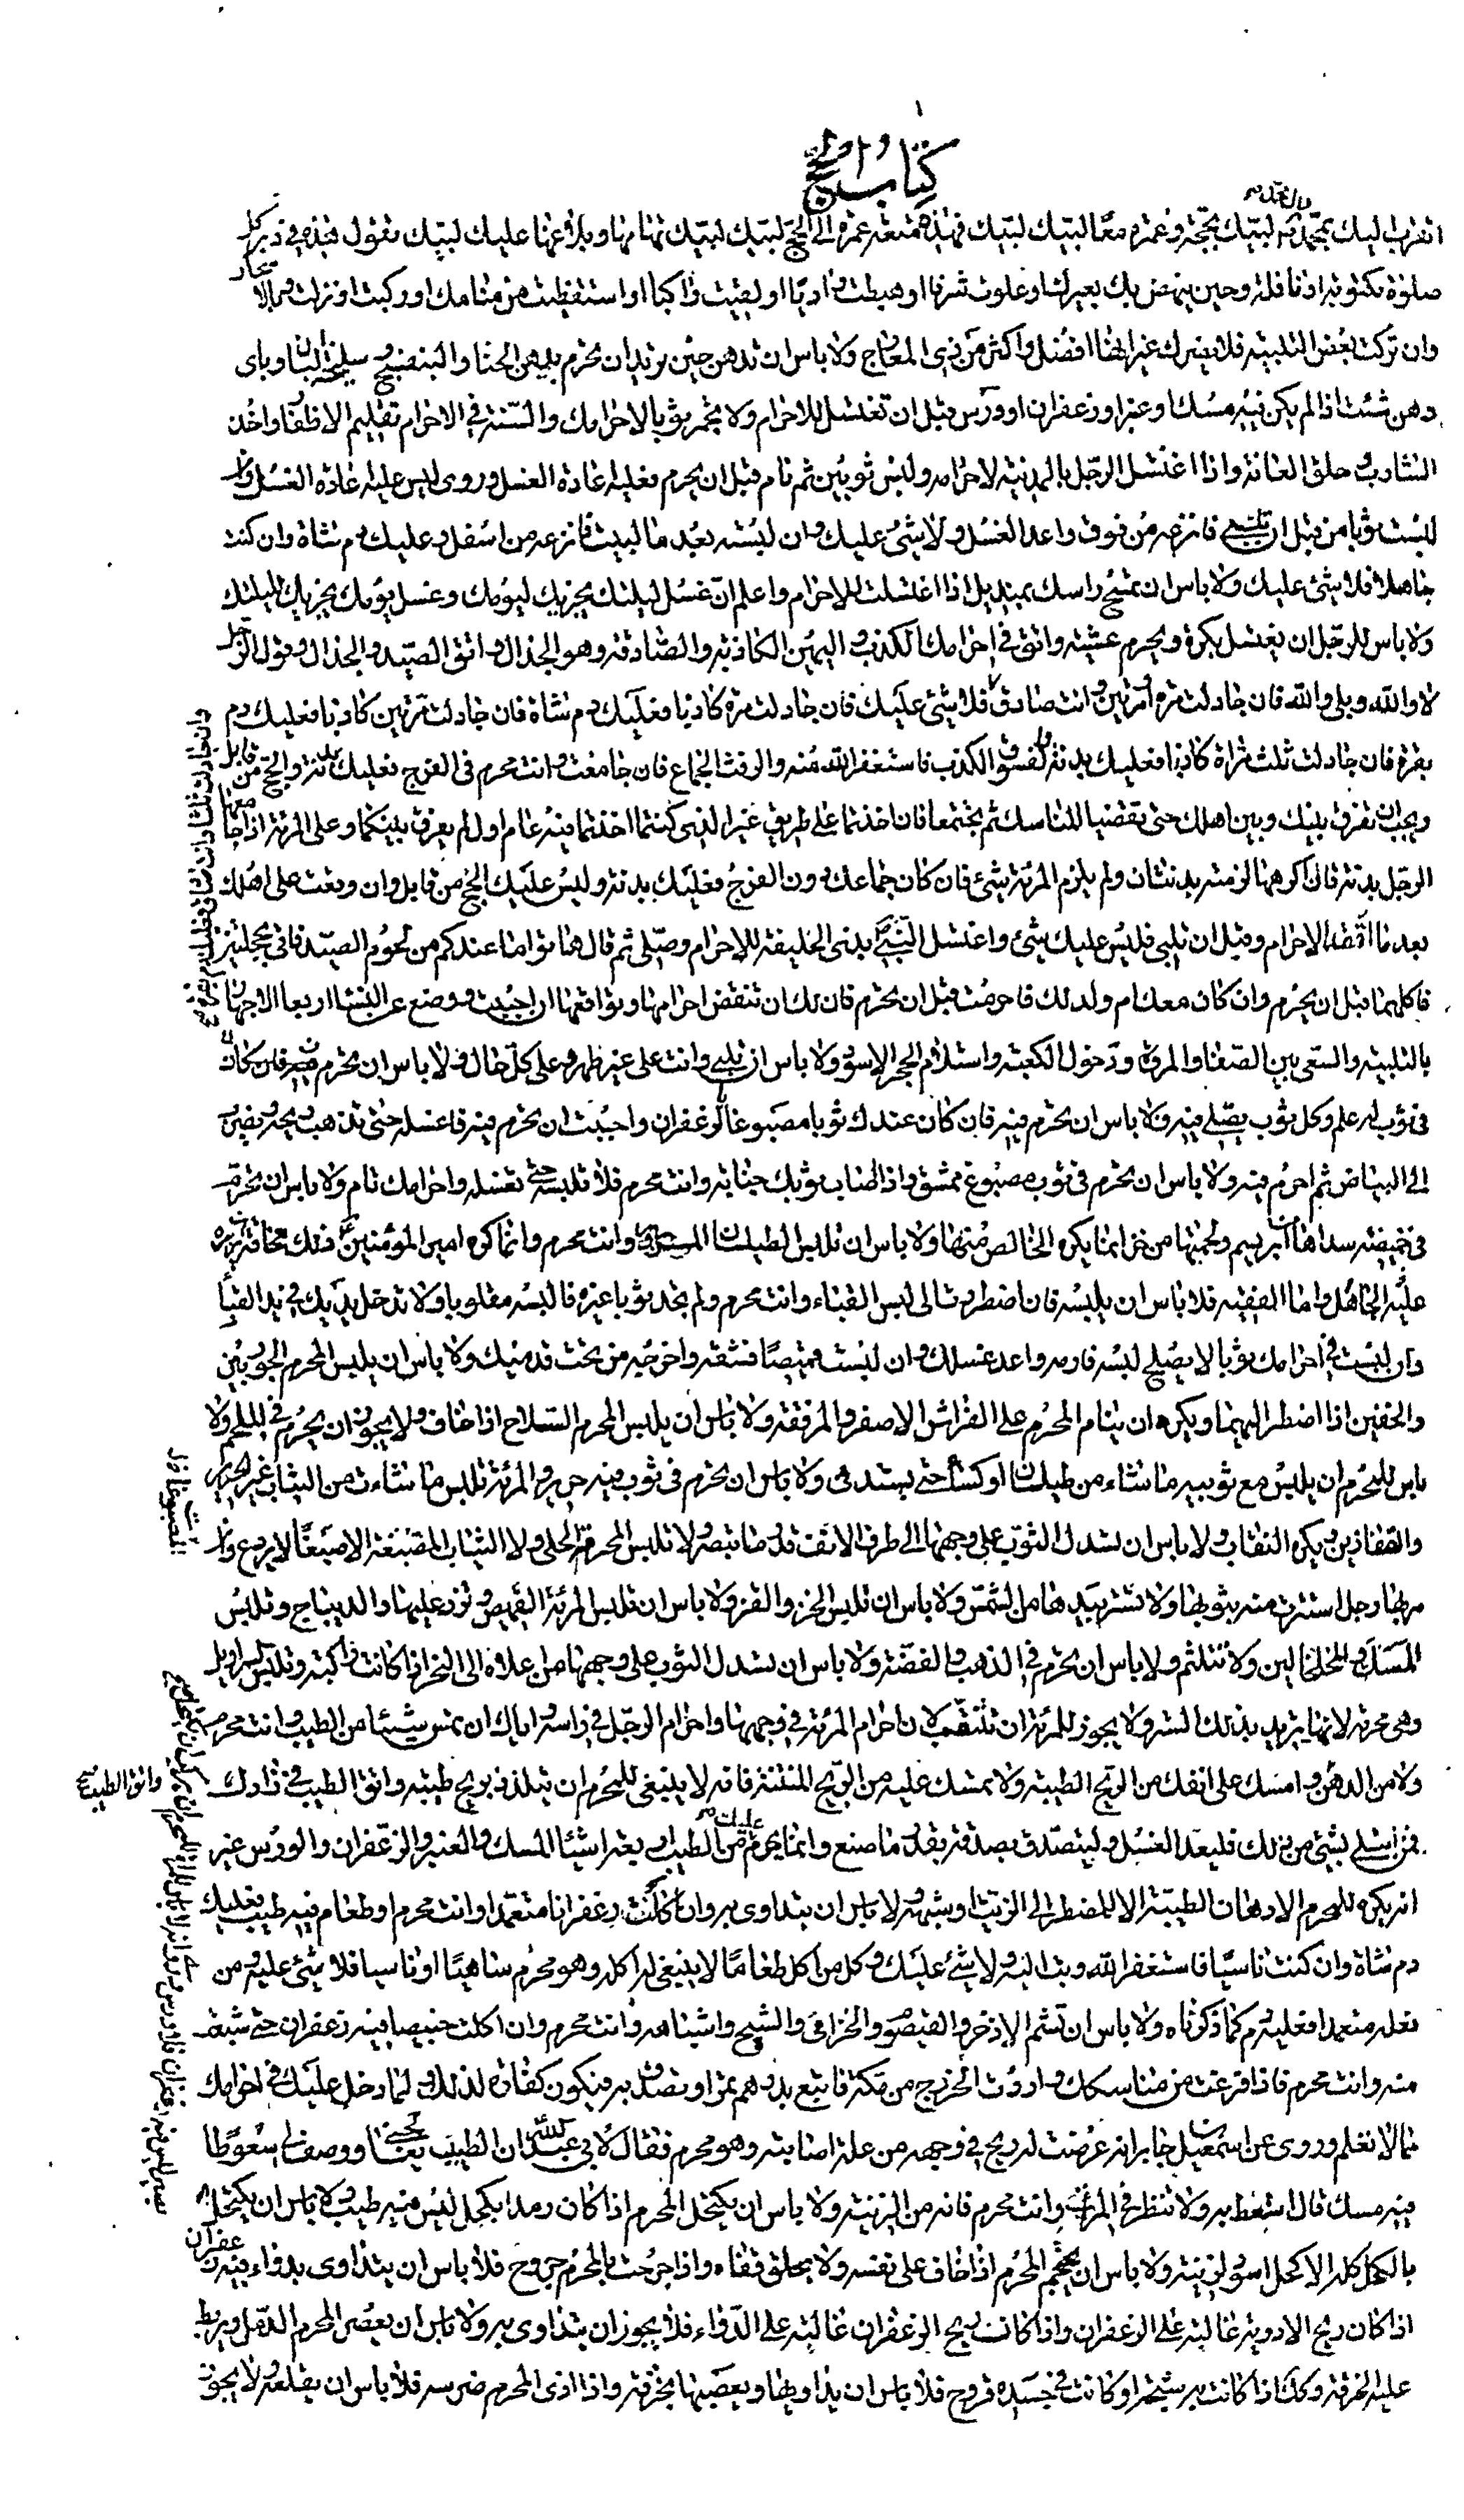 كتاب الحج
اتقرب اليك بمحمد وال محمد لبيك بحجة وعمرة معا لبيك لبيك فهذه متعة عمرة الى الحج لبيك لبيك تمامها وبلاغها عليك لبيك تقول هذه في دبر كل
صلوة مكتوبة او نافلة وحين ينهض بك بعيرك او علوت شرفا او هبطت واديا او لقيت راكبا او استيقظت من منامك او ركبت او نزلت وبالاسحار
وان تركت بعض التلبية فلا يضرك غير انها افضل واكثر من ذي المعارج ولا باس ان تدهن حين تريد ان تحرم بدهن الحنا والبنفسج وسليخة البان وباى
دهن شئت اذا لم يكن فيه مسك او عنبر او زعفران او ورس قبل ان تغتسل للاحرام ولا تجمر ثوبا لاحرامك والسنة في الاحرام تقليم الاظفار واخذ
الشارب وحلق العانة واذا اغتسل الرجل بالمدينة لاحرامه ولبس ثوبين ثم نام قبل ان يحرم فعليه اعادة الغسل وروى ليس عليه اعادة الغسل وان
لبست ثوبا من قبل ان تلبي فانزعه من فوق واعد الغسل ولا شئ عليك وان لبسته بعد ما لبيت فانزعه من اسفل وعليك دم شاة وان كنت
جاهلا فلا شئ عليك ولا باس ان تمسح راسك بمنديل اذا اغتسلت للاحرام واعلم ان غسل ليلتك يجزيك ليومك وغسل يومك يجزيك لليلتك
ولا باس للرجل ان يغتسل بكرة ويحرم عشية واتق في احرامك الكذب واليمين الكاذبة والصادقة وهو الجدال واتق الصيد والجدال وقول الرجل
لا والله وبلى والله فان جادلت مرة او مرتين وانت صادق فلا شئ عليك فان جادلت مرة كاذبا فعليك دم شاة فان جادلت مرتين كاذبا فعليك دم
بقرة فان جادلت ثلث مراة كاذبا فعليك بدنة والفسوق الكذب فاستغفر الله منه والرفث الجماع فان جامعت وانت محرم فى الفرج فعليك بدنة والحج من قابل
ويجب ان تفرق بينك وبين اهلك حتى تقضيا المناسك ثم تجتمعا فان اخذتما على طريق غير الذى كنتما اخذتما فيه عام اول لم يفرق بينكما وعلى المرئة اذا جامعها
الرجل بدنة فان اكرهها لزمته بدنتان ولم يلزم المرئة شئ فان كان جماعك دون الفرج فعليك بدنة وليس عليك الحج من قابل وان وقعت على اهلك
بعد ما الاحرام وقبل ان تلبي فليس عليك شئ واغتسل النبي بذى الحليفة للاحرام وصلى ثم قال هاتوا ما عندكم من لحوم الصيد فاتى بحجلتين
فاكلهما قبل ان يحرم وان كان معك ام ولد لك فاحرمت قبل ان تحرم فان لك ان تنقض احرامها وتواقعها ان احببت ووضع عن النساء اربعا الاجهار
بالتلبية والسعى بين الصفا والمروة ودخول الكعبة واستلام الحجر الاسود ولا باس ان تلبي وانت على غير طهر وعلى كل حال ولا باس ان تحرم
فى ثوب له علم وكل ثوب يصلى فيه ولا باس ان تحرم فيه فان كان عندك ثوبا مصبوغا بالزعفران واحببت ان تحرم فيه فاغسله حتى تذهب ريحه ويضرب
الى البياض ثم احرم فيه ولا باس ان تحرم فى ثوب مصبوغ ممشق واذا اصاب ثوبك جنابة وانت محرم فلا تلبسه حتى تغسله واحرامك تام ولا باس ان تحرم
فى خميصة سداها ابريسم ولحمتها من خز انما يكره الخالص منها ولا باس ان تلبس الطيلسان المزرر وانت محرم وانما كره امير المؤمنين ذلك مخافة ان يزره
عليه الجاهل واما الفقيه فلا باس ان يلبسه فان اضطررت الى لبس القباء وانت محرم ولم تجد ثوبا غيره فالبسه مقلوبا ولا تدخل يديك في يد القبا
وان لبست في احرامك ثوبا لا يصلح لبسه فلب واعد غسلك وان لبست قميصا فشقه واخرجه من تحت قدميك ولا باس ان يلبس المحرم الجوربين
والخفين اذا اضطر اليهما ويكره ان ينام المحرم على الفراش الاصفر والمرفقة ولا باس ان يلبس المحرم السلاح اذا خاف ولا يجوز ان يحرم في الملحم ولا
باس للمحرم ان يلبس مع ثوبيه ما شاء من طيلسان او كساء حتى يستدفى ولا باس ان تحرم فى ثوب فيه حرير والمرئة تلبس ما شاءت من الثياب غير الحرير
والقفازين ويكره النقاب ولا باس ان تسدل الثوب على وجهها الى طرف الانف قدر ما تبصر ولا تلبس المحرمة الحلى ولا الثياب المصبغة الا صبغا لا يردع وان
مر بها رجل استترت منه بثوبها ولا تستتر بيدها من الشمس ولا باس ان تلبس الخز والقز ولا باس ان تلبس المرئة القميص وتزر عليها والديباج وتلبس
المسك والخلخالين ولا تتلثم ولا باس ان تحرم في الذهب والفضة ولا باس ان تسدل الثوب على وجهها من اعلاه الى النحر اذا كانت راكبة وتلبس السراويل
وهى محرمة لانها تريد بذلك الستر ولا يجوز للمرئة ان تتنقب لان احرام المرئة في وجهها واحرام الرجل في راسه واياك ان تمس شيئا من الطيب وانت محرم
ولا من الدهن وامسك على انفك من الريح الطيبة ولا تمسك عليه من الريح المنتنة فانه لا ينبغى للمحرم ان يتلذذ بريح طيبة واتق الطيب في زادك
فمن ابتلى بشئ من ذلك فليعد الغسل وليتصدق بصدقة بقدر ما صنع وانما يحرم عليك من الطيب اربعة اشياء المسك والعنبر والزعفران والورس غير
انه يكره للمحرم الادهان الطيبة الا للمضطر الى الزيت او شبهه لا باس ان يتداوى به وان اكلت زعفرانا متعمدا وانت محرم او طعام فيه طيب فعليك
دم شاة وان كنت ناسيا فاستغفر الله وتب اليه ولا شئ عليك وكل من اكل طعاما لا ينبغى له اكله وهو محرم ساهيا او ناسيا فلا شئ عليه ومن
فعله متعمدا فعليه دم كما ذكرناه ولا باس ان تشم الاذخر والقيصوم والخزامى والشيح واشباهه وانت محرم وان اكلت خبيصا فيه زعفران حتى شبعت
منه وانت محرم فاذا فرغت من مناسكك واردت الخروج من مكة فابتع بدرهم تمرا وتصدق به فيكون كفارة لذلك ولما دخل عليك في احرامك
مما لا تعلم وروى عن اسمعيل جابر انه عرضت له ريح في وجهه من علة اصابته وهو محرم فقال لابي عبد الله ان الطبيب يعالجني ووصف لى سعوطا
فيه مسك قال استعط به ولا تنظر في المرآة وانت محرم فانه من الزينة ولا باس ان يكتحل المحرم اذا كان رمدا بكحل ليس فيه طيب ولا باس ان يكتحل
بالكحل كله الا كحل اسود لزينة ولا باس ان يحتجم المحرم اذا خاف على نفسه ولا يحلق قفاه واذا جرحت بالمحرم جروح فلا باس ان يتداوى بدواء فيه زعفران
اذا كان ريح الادوية غالبة على الزعفران واذا كانت ريح الزعفران غالبة على الدواء فلا يجوز ان يتداوى به ولا باس ان يعصر المحرم الدمل ويربط
عليه الخرقة وكك اذا كانت به شجة او كانت في جسده قروح فلا باس ان يداويها ويعصبها بخرقة واذا اذى المحرم ضرسه فلا باس ان يقلعه ولا يجوز